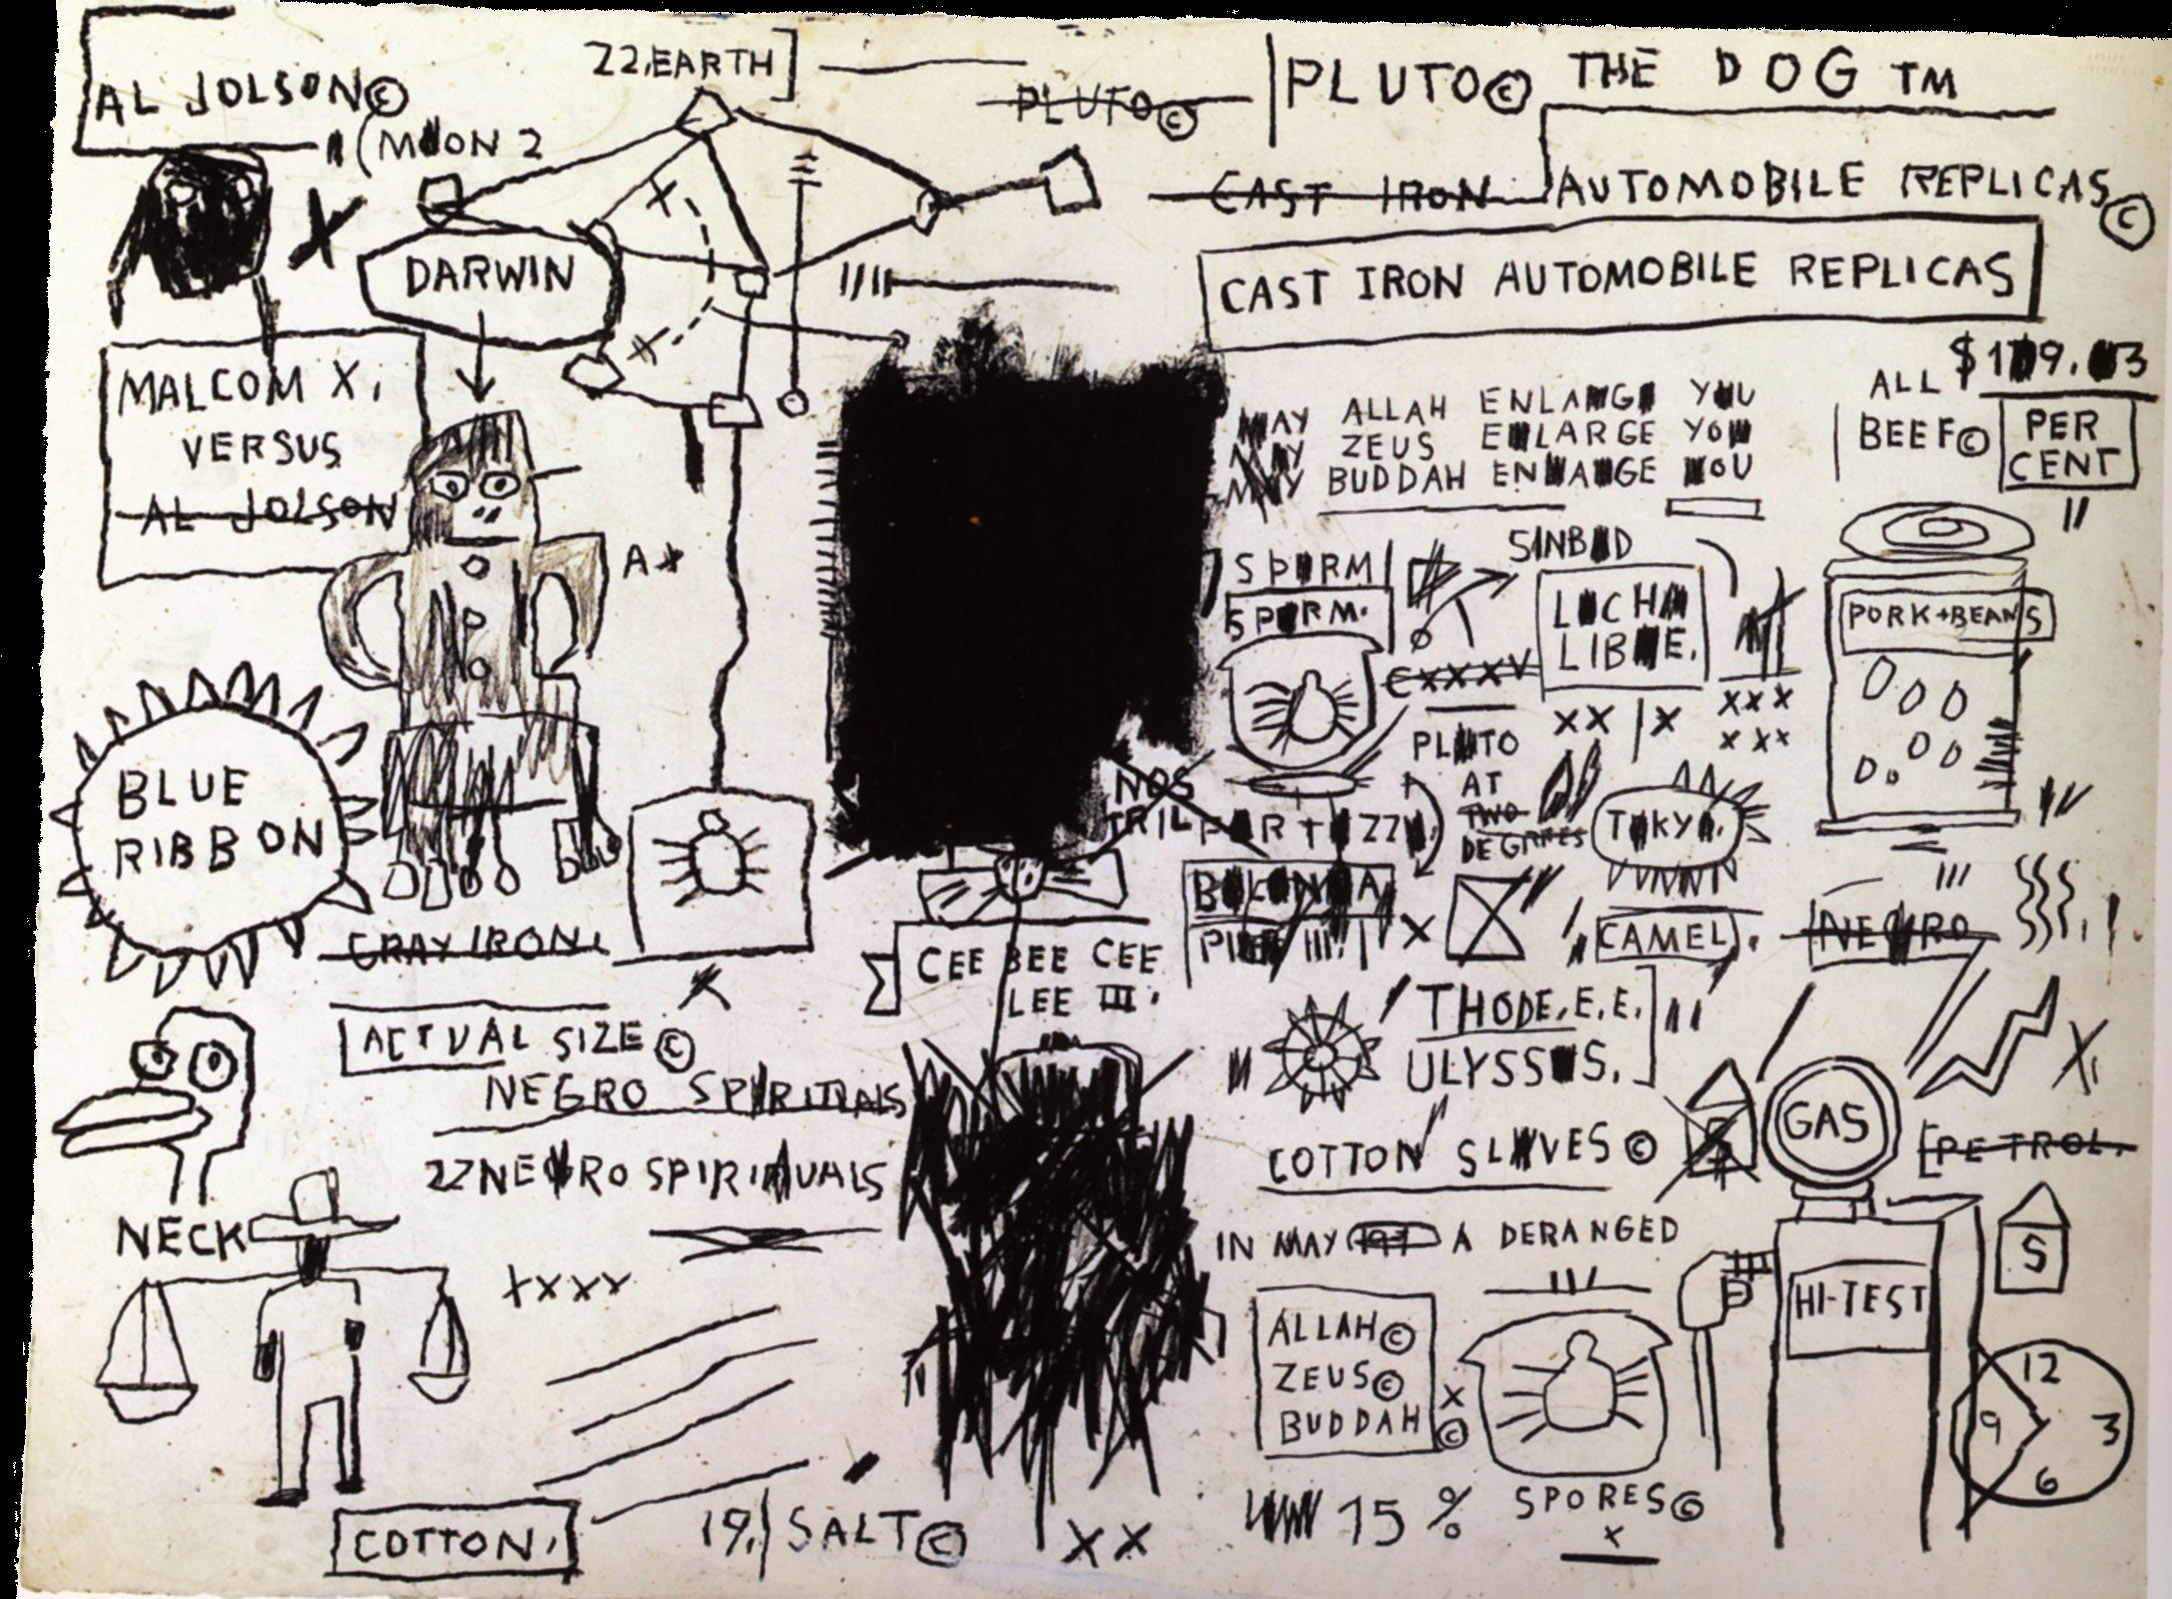 AL JOLSON©
22.EARTH]
PLUTO©
PLUTO© THE DOG TM
(MOON 2
CAST IRON AUTOMOBILE REPLICAS©
DARWIN
CAST IRON AUTOMOBILE REPLICAS
MALCOM X.
VERSUS
AL JOLSON
ALL
BEEF©
PER
CENT
MAY ALLAH ENLARGE YOU
MAY ZEUS ENLARGE YOU
MAY BUDDAH ENLARGE YOU
SPERM
SPERM.
SINBAD
LUCHA
LIBRE.
XX | X
XXX
XXX
PORK+BEANS
PLUTO
AT
TWO
DEGREES
NOS
TRIL
TOKYO.
BLUE
RIBBON
GRAY IRON.
CEE BEE CEE
LEE III.
X
CAMEL.
NEGRO
ACTUAL SIZE©
THODE.E.E.
ULYSSES.
NEGRO SPIRITUALS
22 NEGRO SPIRITUALS
COTTON SLAVES ©
GAS
PETROL.
X.
NECK
IN MAY A DERANGED
S
HI-TEST
XXXX
ALLAH©
ZEUS©
BUDDAH ©
X
12
9 3
6
15 % SPORES©
X
COTTON.
19.| SALT©
XX